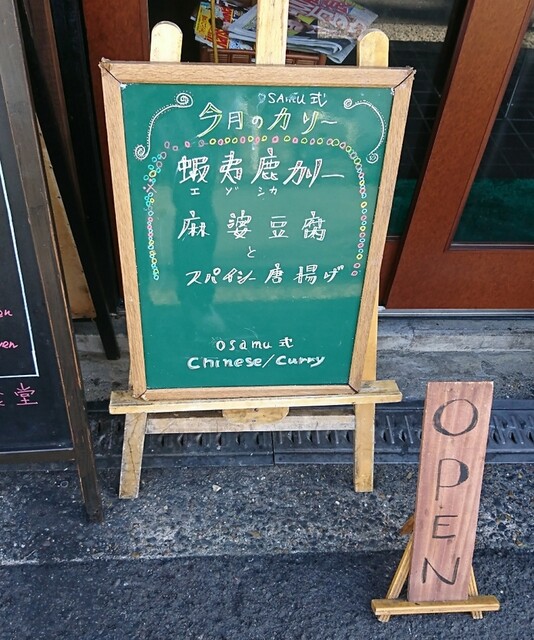 OSAMU式
今月のカリー
蝦夷鹿カリー
エゾシカ
麻婆豆腐
と
スパイシー唐揚げ
osamu式
Chinese/Curry
OPEN
堂